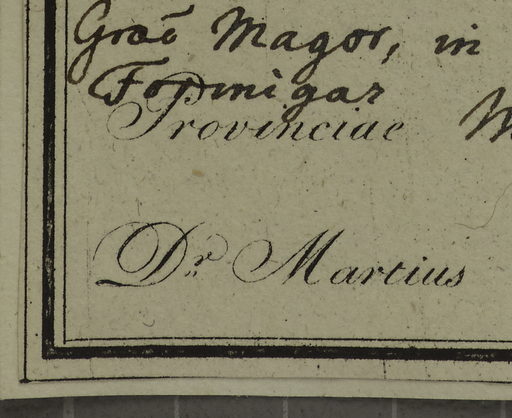 Grāo Magor, in
Formigas
Provinciae
Dr. Martius